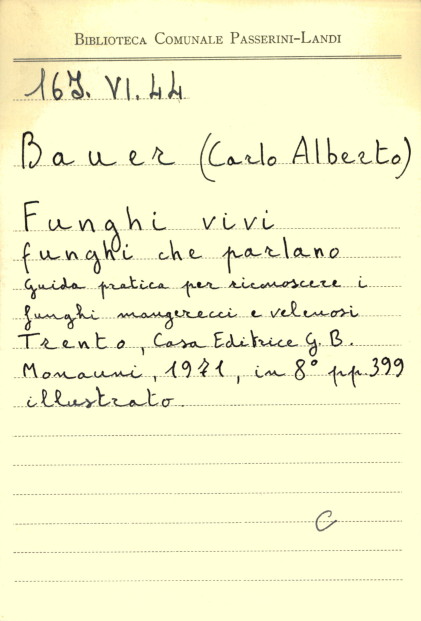 BIBLIOTECA COMUNALE PASSERINI-LANDI
16J. VI. 44
Bauer (Carlo Alberto)
Funghi vivi
funghi che parlano
Guida pratica per riconoscere i
funghi mangerecci e velenosi
Trento, Casa Editrice G. B.
Monauni, 1971, in 8° pp. 399
illustrato.
C